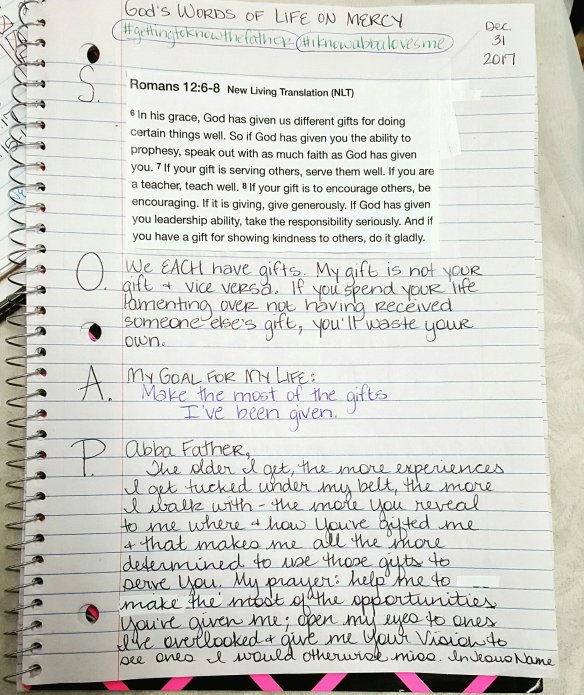 God's Words of Life on Mercy
#gettingtoknowthefather #iknowabbalovesme
Dec.
31
2017
S.
Romans 12:6-8 New Living Translation (NLT)
6 In his grace, God has given us different gifts for doing
certain things well. So if God has given you the ability to
prophesy, speak out with as much faith as God has given
you. 7 If your gift is serving others, serve them well. If you are
a teacher, teach well. 8 If your gift is to encourage others, be
encouraging. If it is giving, give generously. If God has given
you leadership ability, take the responsibility seriously. And if
you have a gift for showing kindness to others, do it gladly.
O.
We EACH have gifts. My gift is not your
gift + vice versa. If you spend your life
lamenting over not having received
someone else's gift, you'll waste your
own.
A.
My Goal for My Life:
Make the most of the gifts
I've been given.
P.
Abba Father,
The older I get, the more experiences
I get tucked under my belt, the more
I walk with - the more You reveal
to me where + how You've gifted me
+ that makes me all the more
determined to use those gifts to
serve You. My prayer: help me to
make the most of the opportunities
You've given me; open my eyes to ones
I've overlooked + give me Your Vision to
see ones I would otherwise miss. In Jesus Name